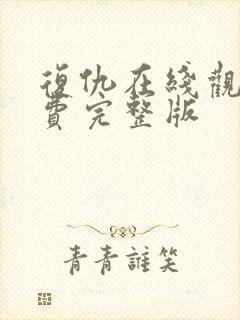 復仇在綫觀
費完整版
青青誰笑